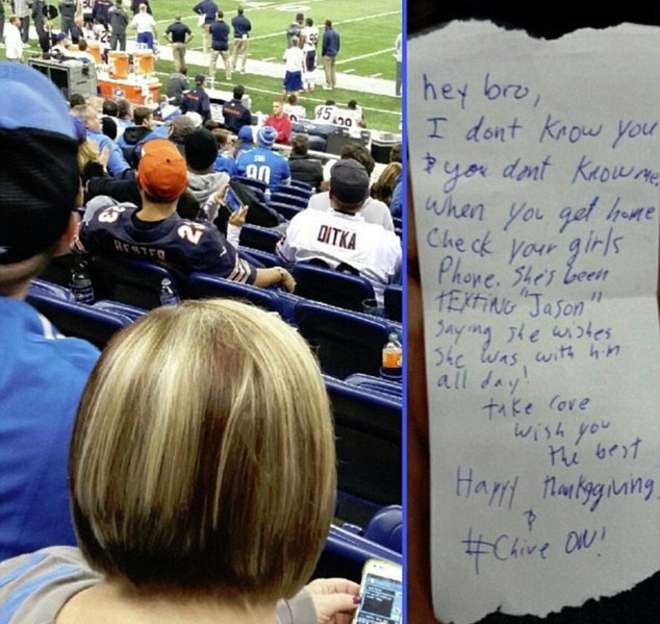 45
29
90
HESTER
23
DITKA
hey bro,
I dont know you
& you dont know me,
when you get home
check your girls
Phone. She's been
TEXTING "Jason"
saying she wishes
she was with him
all day!
take care
wish you
the best
Happy Thankggiving
&
#Chive ON!